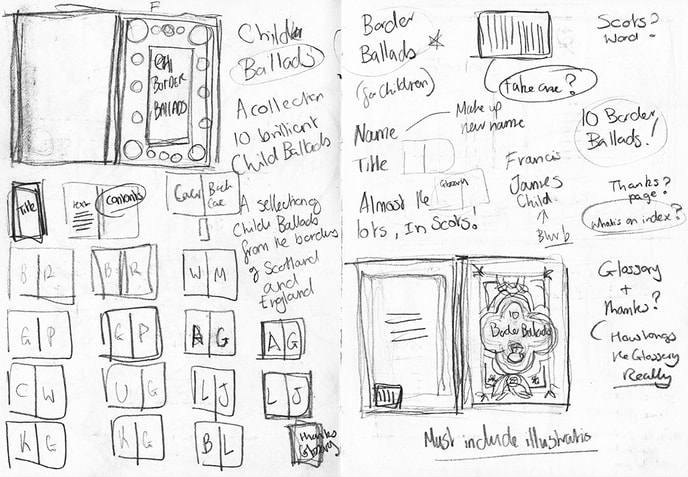 F
10
BORDER
BALLADS
Child
Ballads
A collection
10 brilliant
Child Ballads
Title
Contents
Cover
Back
A selection of
Child Ballads
from the borders
of Scotland
and
England
B R
B R
W M
G P
G P
A G
A G
C W
U G
L J
L J
K G
K G
B L
Thanks
Glossary
Border
Ballads
(for Children)
Name
Make up
new name
Title
Glossary
Almost the
lots, In Scots!
Francis
James
Child
Blurb
Scots?
Word
fake one?
10 Border
Ballads!
Thanks?
page?
What's an index?
Glossary
+
Thanks?
How long's
the Glossery
Really
10
Border Ballads
Must include illustratio